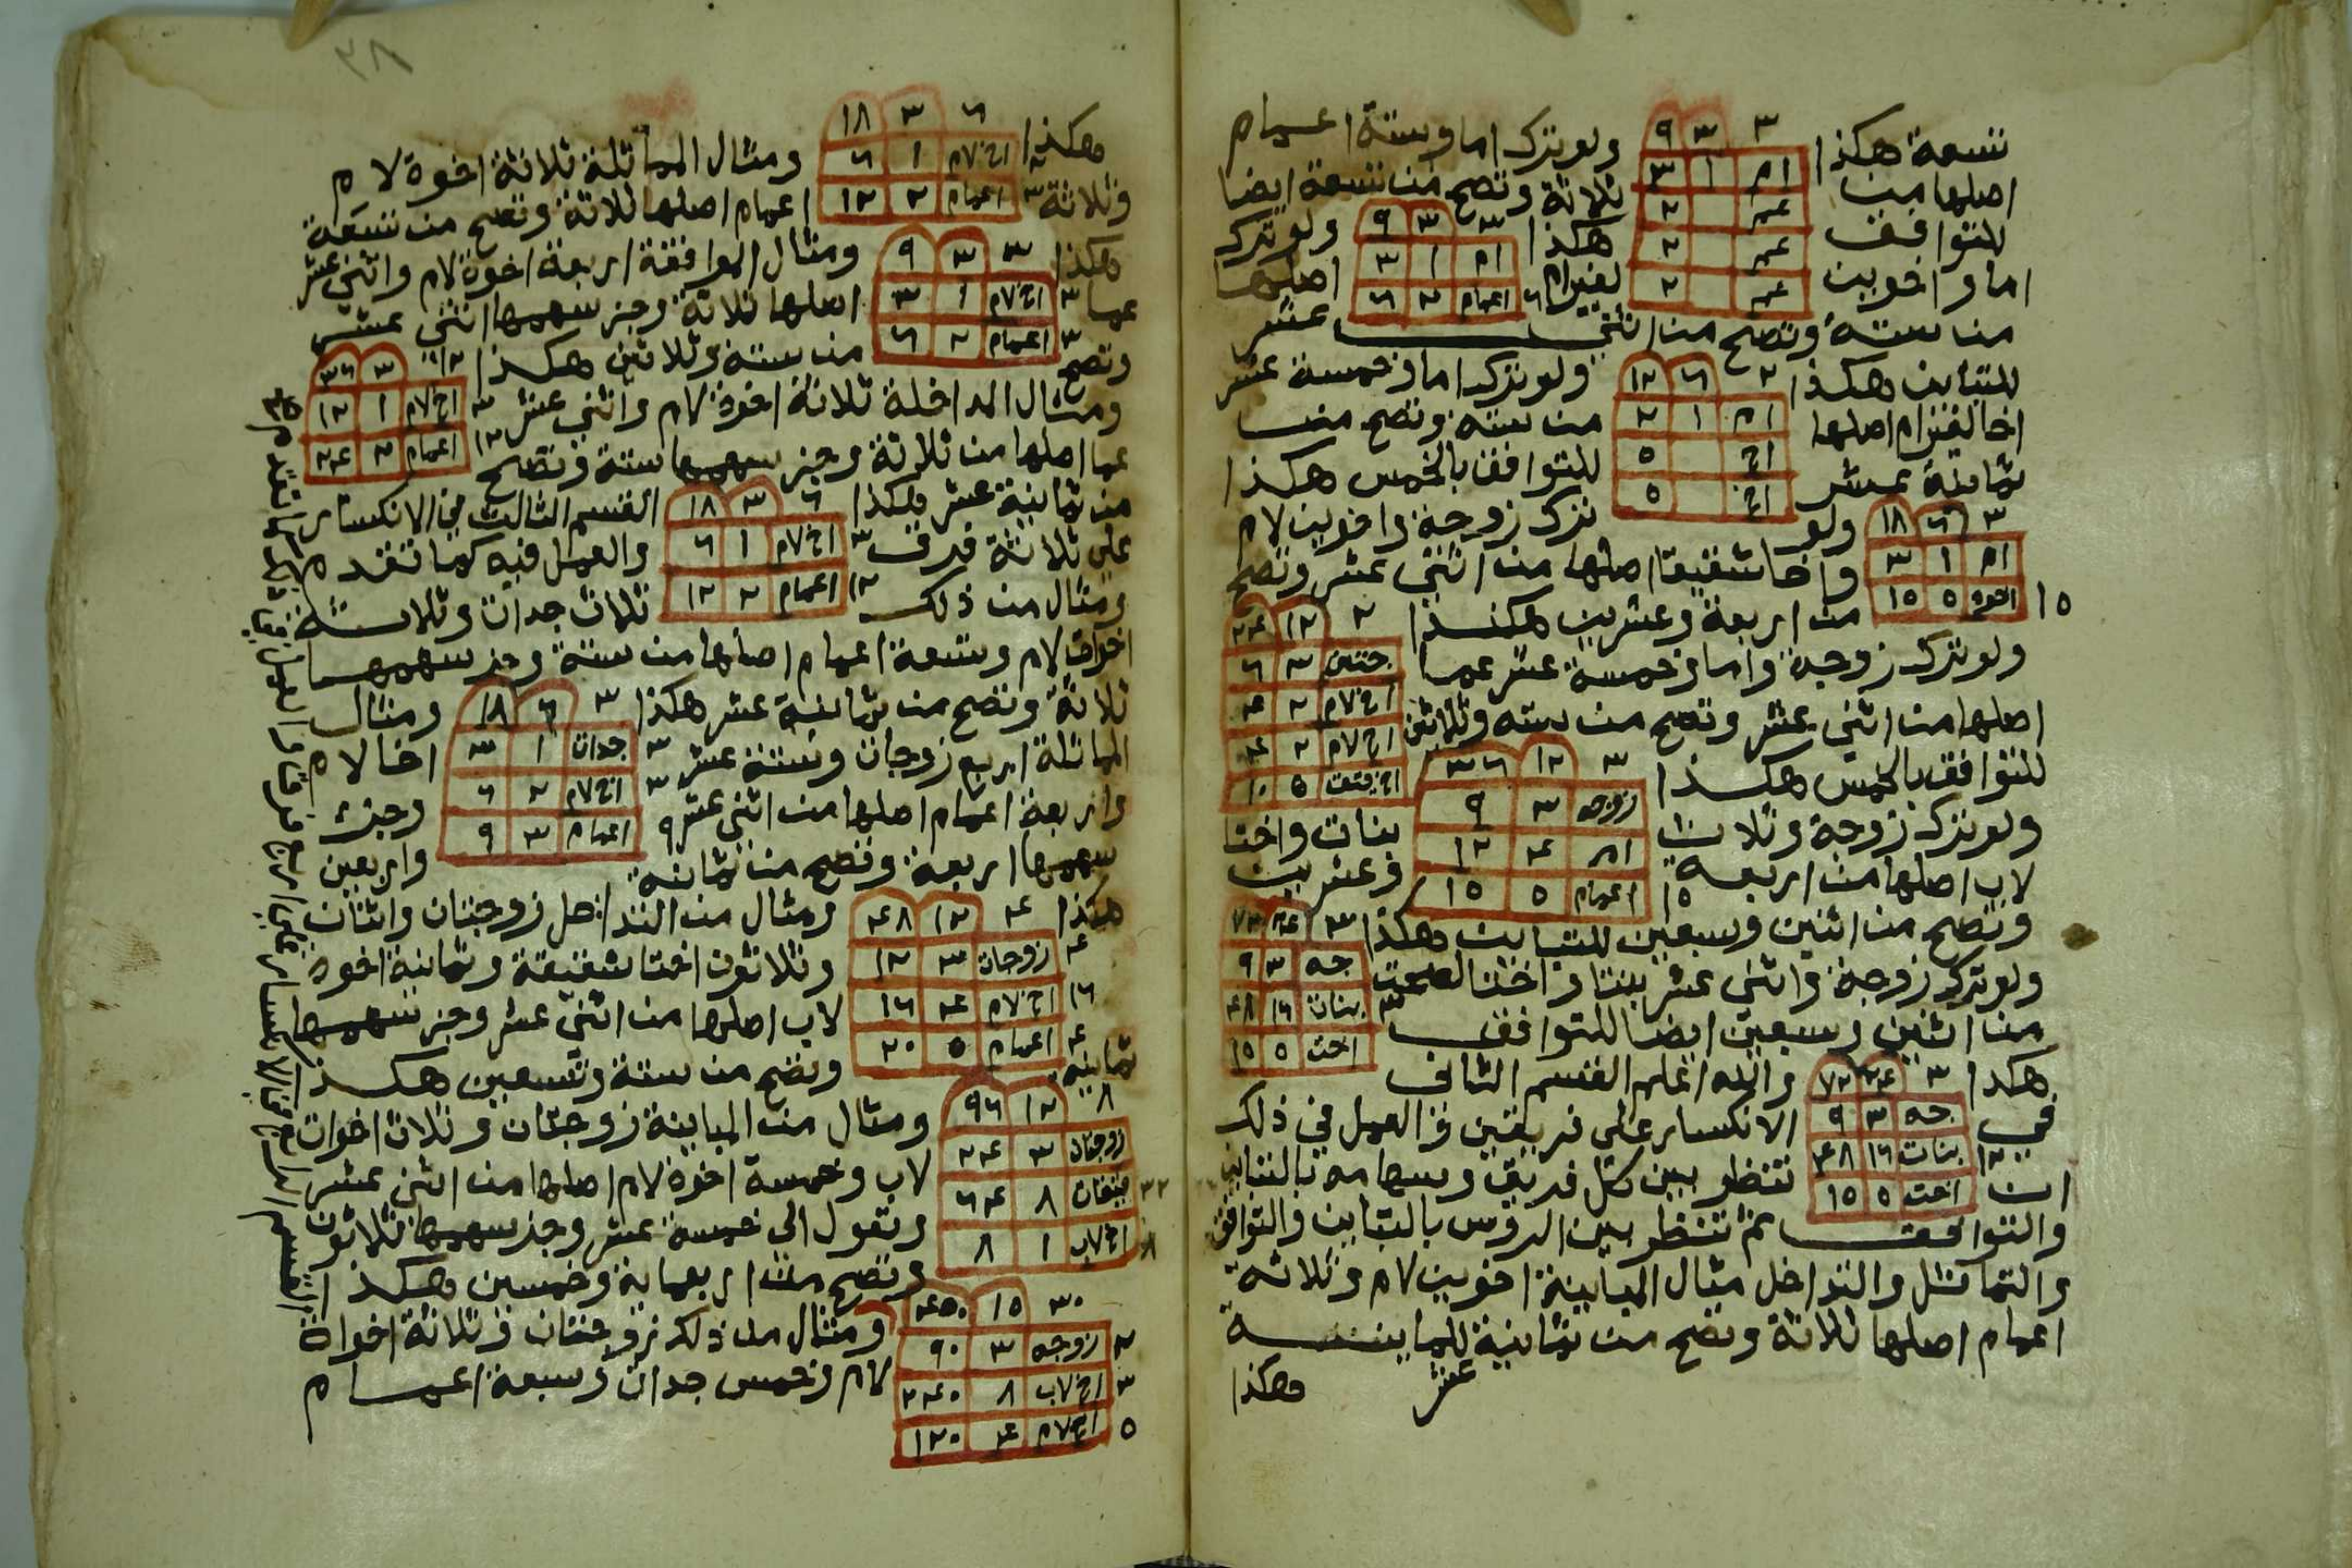 تسعة هكذا ولو ترك اما وستة اعمام
٣ ٣ ٩
ام ١ ٣
عم ٢
عم ٢
عم ٢
اصلها من ثلاثة وتصح من تسعة ايضا
للتوافق هكذا
٣ ٣ ٩
ام ١ ٣
٦ اعمام ٢ ٦
ولو ترك
اما واخوين لغير ام اصلها
من ستة وتصح من اثني عشر
للتباين هكذا
٢ ٦ ١٢
ام ١ ٢
اخ ٥
اخ ٥
ولو ترك اما وخمسة عشر
اخا لغير ام اصلها من ستة وتصح من
ثمانية عشر للتوافق بالخمس هكذا
٣ ٦ ١٨
ام ١ ٣
١٥ اخوة ٥ ١٥
ولو ترك زوجة واخوين لام
واخا شقيقا اصلها من اثني عشر وتصح
من اربعة وعشرين هكذا
٢ ١٢ ٢٤
٣ ٦
اخ لام ٢ ٤
اخ لام ٢ ٤
اخ شقيق ٥ ١٠
ولو ترك زوجة واما وخمسة عشر عما
اصلها من اثني عشر وتصح من ستة وثلاثين
للتوافق بالخمس هكذا
٣ ١٢ ٣٦
زوجه ٣ ٩
ام ٤ ١٢
١٥ اعمام ٥ ١٥
ولو ترك زوجة وثلاث بنات واختا
لاب اصلها من اربعة وعشرين
وتصح من اثنين وسبعين للتباين هكذا
٣ ٢٤ ٧٢
جه ٣ ٩
٣ بنات ١٦ ٤٨
اخت ٥ ١٥
ولو ترك زوجة واثني عشر بنتا واختا لصحت
من اثنين وسبعين ايضا للتوافق
هكذا
٣ ٢٤ ٧٢
جه ٣ ٩
١٢ بنات ١٦ ٤٨
اخت ٥ ١٥
والله اعلم القسم الثاني
في الانكسار على فريقين والعمل في ذلك
ان تنظر بين كل فريق وسهامه بالتباين
والتوافق ثم تنظر بين الروس بالتباين والتوافق
والتماثل والتداخل مثال المباينة اخوين لام وثلاثة
اعمام اصلها ثلاثة وتصح من ثمانية للمباينة
عشر
وهكذا
٣٨
وهكذا
٦ ٣ ١٨
٢ اخ لام ١ ٦
٣ اعمام ٢ ١٢
ومثال المماثلة ثلاثة اخوة لام
وثلاثة اعمام اصلها ثلاثة وتصح من تسعة
هكذا
٣ ٣ ٩
٣ اخ لام ١ ٣
٣ اعمام ٢ ٦
ومثال الموافقة اربعة اخوة لام واثني عشر
عما اصلها ثلاثة وجز سهمها اثني عشر
وتصح من ستة وثلاثين هكذا
١٢ ٣ ٣٦
اخ لام ١ ١٢
١٢ اعمام ٢ ٢٤
ومثال المداخلة ثلاثة اخوة لام واثني عشر
عما اصلها من ثلاثة وجز سهمها ستة وتصح
من ثمانية عشر هكذا
٦ ٣ ١٨
٣ اخ لام ١ ٦
١٢ اعمام ٢ ١٢
القسم الثالث في الانكسار
على ثلاثة فرق والعمل فيه كما تقدم
ومثال من ذلك ثلاث جدات وثلاثة
اخوات لام وتسعة اعمام اصلها من ستة وجز سهمها
ثلاثة وتصح من ثمانية عشر هكذا
٣ ٦ ١٨
٣ جدات ١ ٣
٣ اخ لام ٢ ٦
٩ اعمام ٣ ٩
ومثال
المماثلة اربع زوجات وستة عشر اخا لام
واربعة اعمام اصلها من اثني عشر وجز
سهمها اربعة وتصح من ثمانية واربعين
هكذا
٤ ١٢ ٤٨
٤ زوجات ٣ ١٢
١٦ اخ لام ٤ ١٦
٤ اعمام ٥ ٢٠
ومثال من التداخل زوجتان واثنان
وثلاثون اختا شقيقة وثمانية اخوة
لاب اصلها من اثني عشر وجز سهمها
ثمانية وتصح من ستة وتسعين هكذا
٨ ١٢ ٩٦
زوجتان ٣ ٢٤
٣٢ شقيقات ٨ ٦٤
٨ اخ لاب ١ ٨
ومثال من المباينة زوجتان وثلاث اخوات
لاب وخمسة اخوة لام اصلها من اثني عشر
وتعول الى خمسة عشر وجز سهمها ثلاثون
وتصح من اربعماية وخمسين هكذا
٣٠ ١٥ ٤٥٠
٢ زوجه ٣ ٩٠
٣ اخ لاب ٨ ٢٤٠
٥ اخ لام ٤ ١٢٠
ومثال من ذلك زوجتان وثلاثة اخواة
لام وخمس جدات وسبعة اعمام